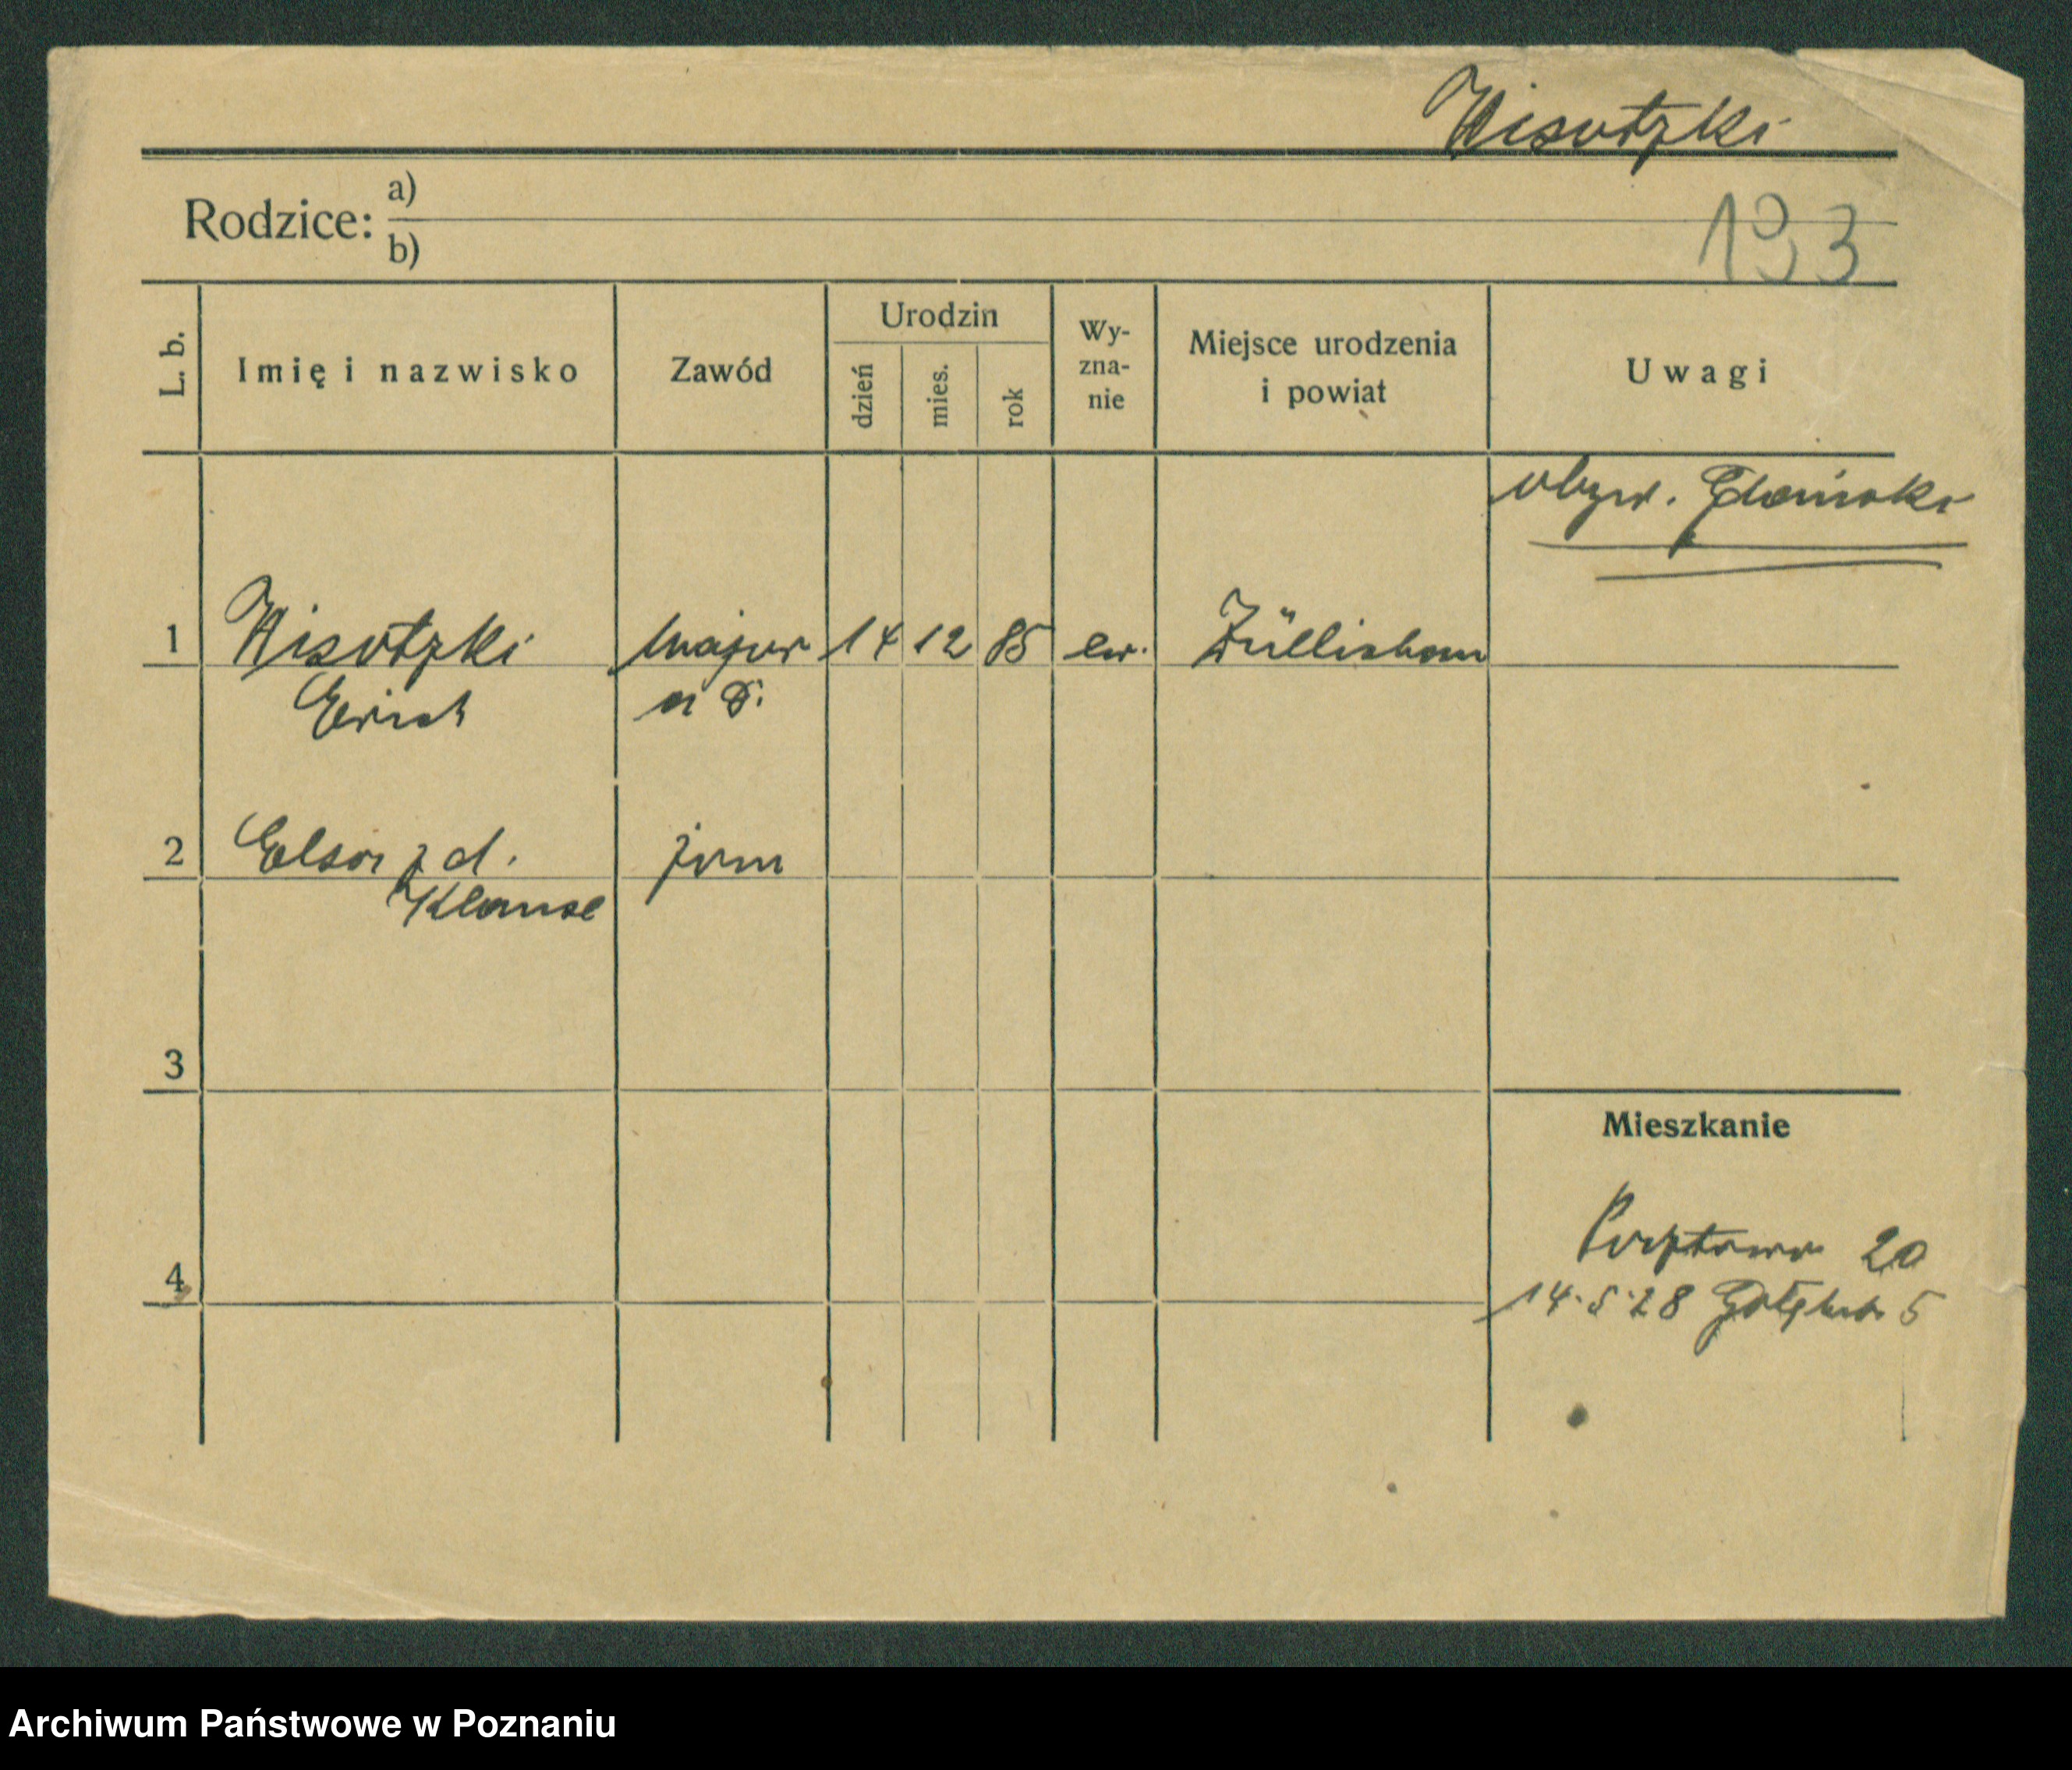 Wisotzki
Rodzice: a)
b)
133
L. b.
Imię i nazwisko
Zawód
Urodzin
dzień
mies.
rok
Wy-
zna-
nie
Miejsce urodzenia
i powiat
Uwagi
obyw. Gdański
1 Wisotzki major 14 12 85 ew. Züllichau
Erich a D.
2 Elsa z d. żona
Klause
3
Mieszkanie
Pocztowa 20
4
14.5.28 Gołębia 5
Archiwum Państwowe w Poznaniu